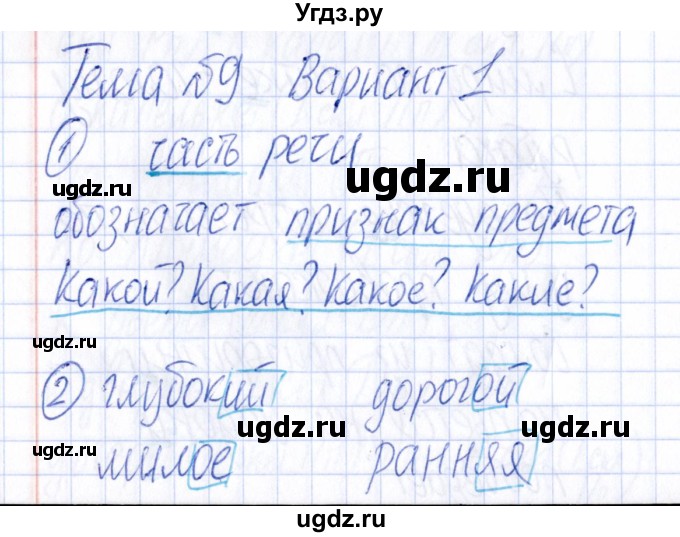 Угдз.ру
Тема №9 Вариант 1
① часть речи
ugdz.ru
ugdz.ru
обозначает признак предмета
Какой? Какая? Какое? Какие?
ugdz.ru
ugdz.ru
② глубокий дорогой
ugdz.ru
ugdz.ru
ugdz.ru
милое ранняя
ugdz.ru
ugdz.ru